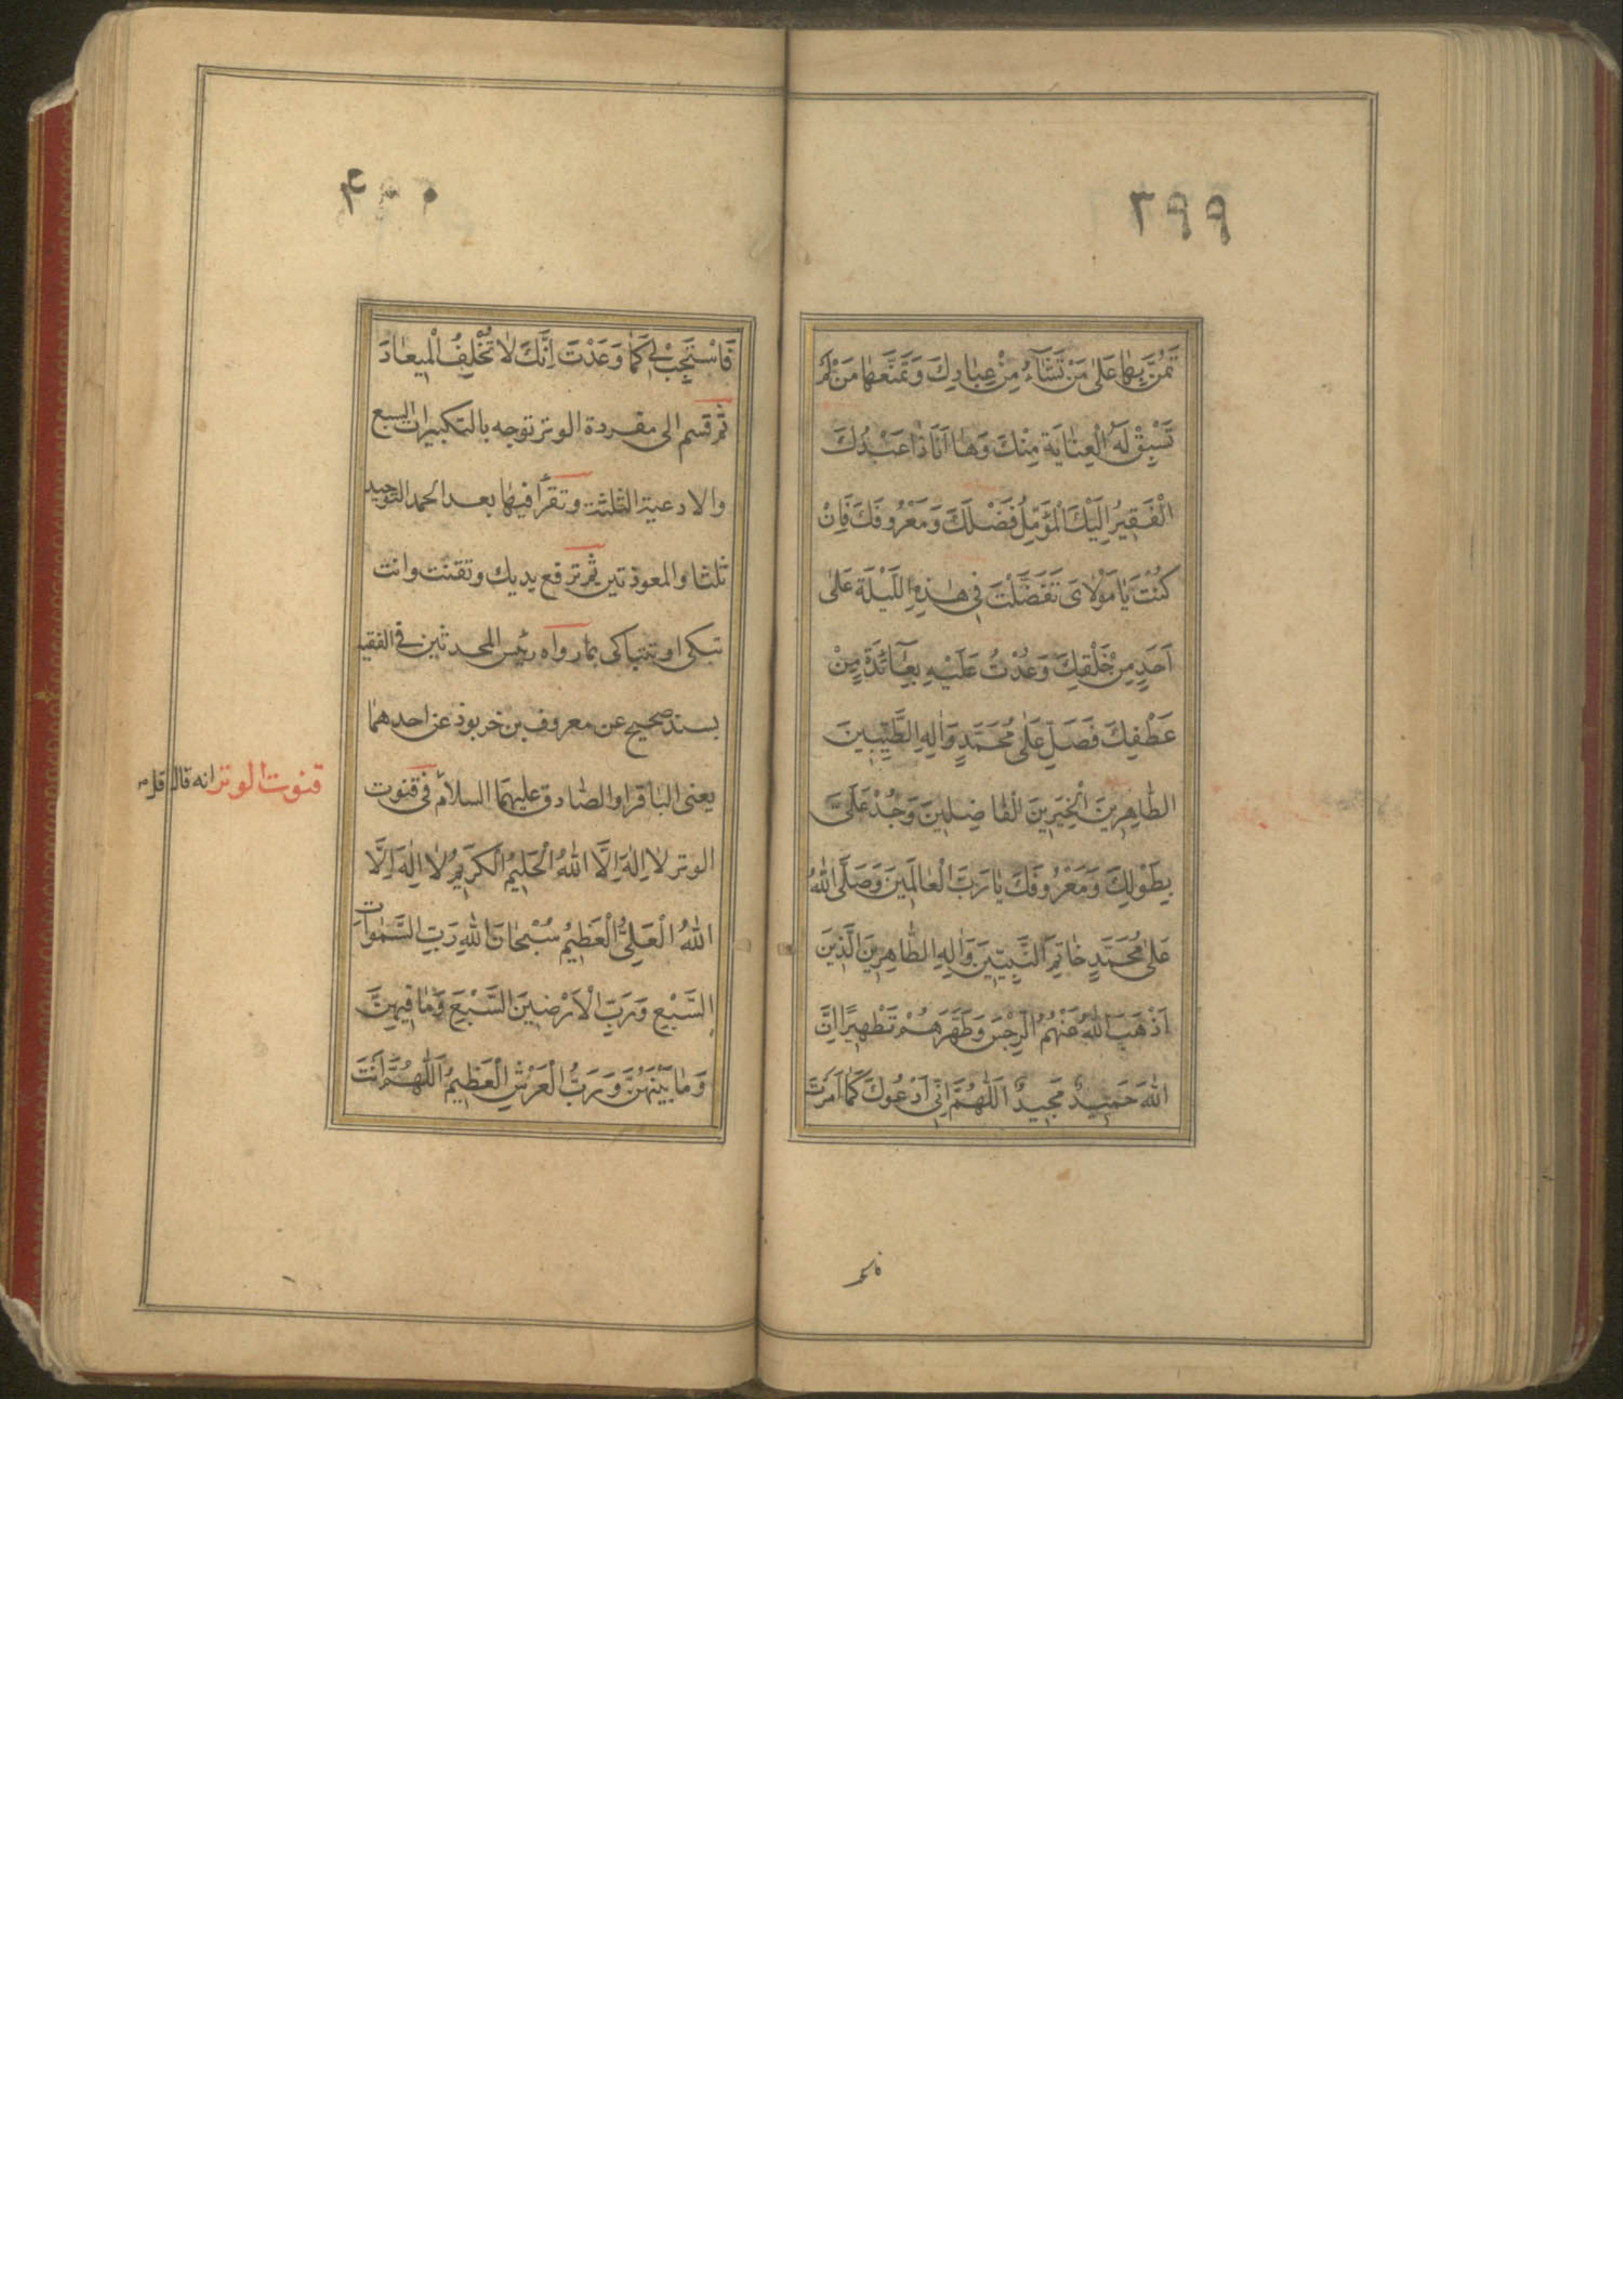 ٣٩٩
تَمُنُّ بِهٰا عَلىٰ مَنْ تَشٰآءُ مِنْ عِبٰادِكَ وَتَمْنَعُهٰا مَنْ لَمْ
تَسْبِقْ لَهُ الْعِنٰايَةُ مِنْكَ وَهٰا اَنَا ذٰا عَبْدُكَ
الْفَقِيرُ اِلَيْكَ الْمُؤَمِّلُ فَضْلَكَ وَمَعْرُوفَكَ فَاِنْ
كُنْتَ يٰا مَوْلاٰىَ تَفَضَّلْتَ فِى هٰذِهِ اللَّيْلَةِ عَلىٰ
اَحَدٍ مِنْ خَلْقِكَ وَعُدْتَ عَلَيْهِ بِعٰآئِدَةٍ مِنْ
عَطْفِكَ فَصَلِّ عَلىٰ مُحَمَّدٍ وَاٰلِهِ الطَّيِّبِينَ
الطّٰاهِرِينَ الْخَيِّرِينَ الْفٰاضِلِينَ وَجُدْ عَلَىَّ
بِطَوْلِكَ وَمَعْرُوفِكَ يٰا رَبَّ الْعٰالَمِينَ وَصَلَّى اللهُ
عَلىٰ مُحَمَّدٍ خٰاتَمِ النَّبِيّينَ وَاٰلِهِ الطّٰاهِرِينَ الَّذِينَ
اَذْهَبَ اللهُ عَنْهُمُ الرِّجْسَ وَطَهَّرَهُمْ تَطْهِيرًا اِنَّ
اللهَ حَمِيدٌ مَجِيدٌ اَللّٰهُمَّ اِنِّى اَدْعُوكَ كَمٰا اَمَرْتَ
٤٠٠
فَاسْتَجِبْ لِى كَمٰا وَعَدْتَ اِنَّكَ لاٰ تُخْلِفُ الْمِيعٰادَ
ثم قسم الى مفردة الوتر توجه بالتكبيرات السبع
والادعية الثلثة وتقرأ فيها بعد الحمد التوحيد
ثلثا والمعوذتين ثم ترفع يديك وتقنت وانت
تبكى او تتباكى بما رواه رئيس المحدثين فى الفقيه
بسند صحيح عن معروف بن خربوذ عن احدهما
يعنى الباقر او الصادق عليهما السلام فى قنوت
قنوت الوتر انه قال قل
الوتر لاٰ اِلٰهَ اِلَّا اللهُ الْحَلِيمُ الْكَرِيمُ لاٰ اِلٰهَ اِلَّا
اللهُ الْعَلِىُّ الْعَظِيمُ سُبْحٰانَ اللهِ رَبِّ السَّمٰوٰاتِ
السَّبْعِ وَرَبِّ الْاَرَضِينَ السَّبْعِ وَمٰا فِيهِنَّ
وَمٰا بَيْنَهُنَّ وَرَبُّ الْعَرْشِ الْعَظِيمُ اَللّٰهُمَّ اَنْتَ